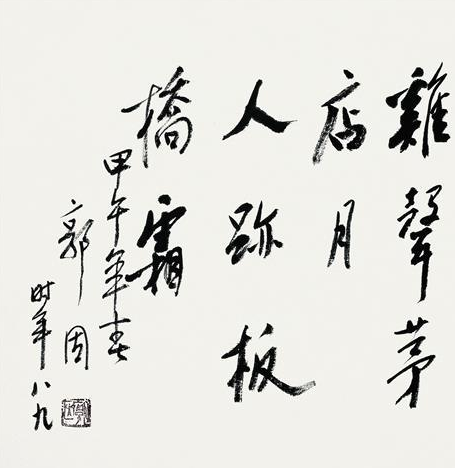 雞聲茅
店月
人跡板
橋霜
甲午年春
郭因
时年八九